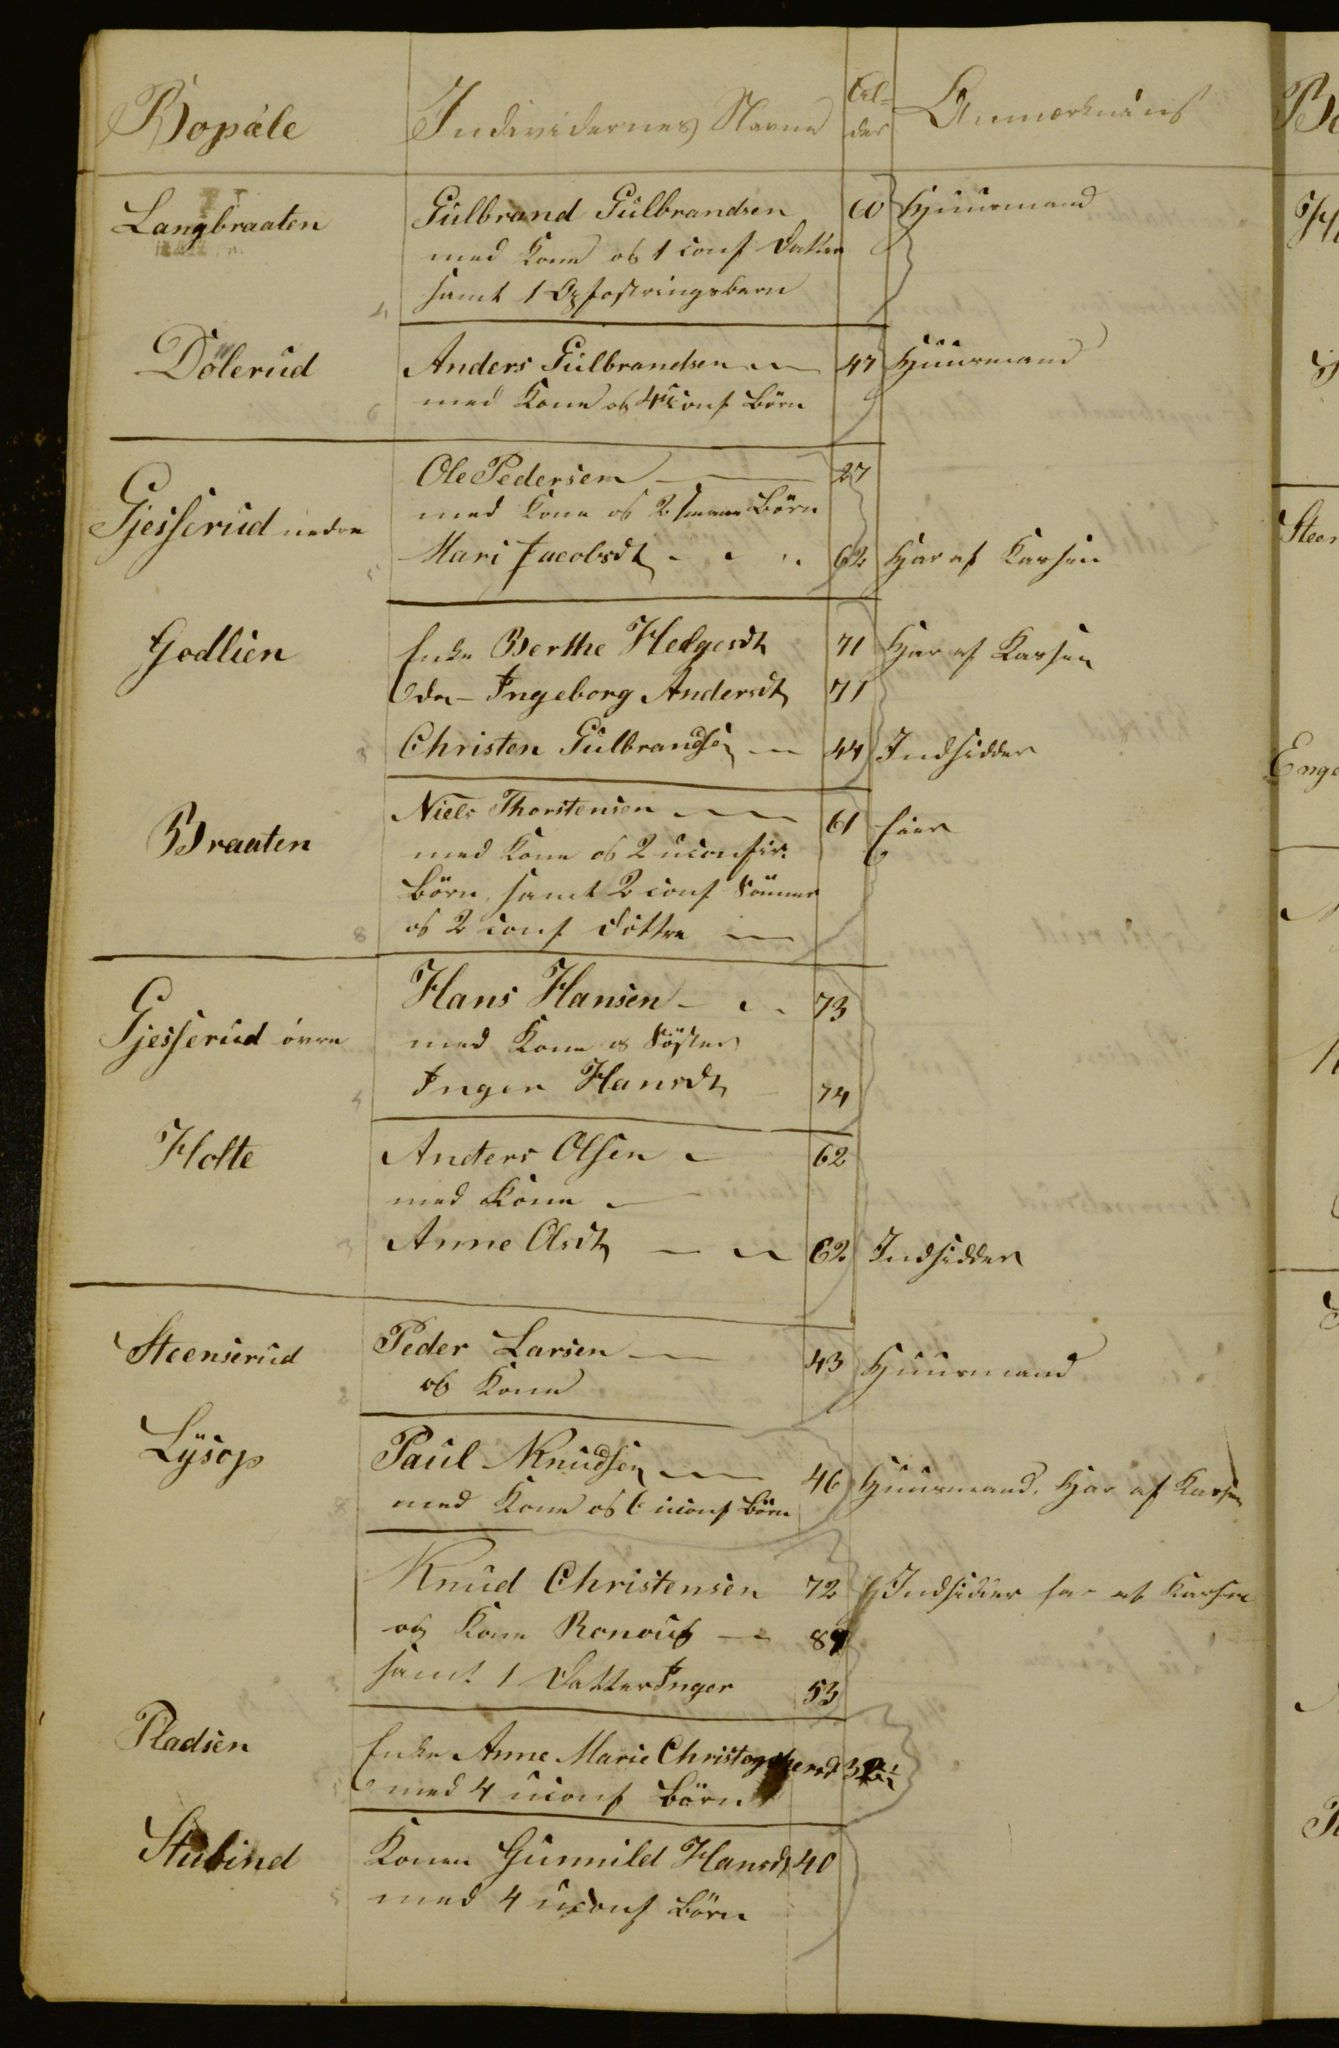 Bopæle Individernes Navne Al-
der Anmærkning
Langbraaten Gulbrand Gulbrandsen 60 Huusmand
med Kone og 1 conf Datter
samt 1 Opfostringsbarn
4
Dölerud Anders Gulbrandsen 47 Huusmand
6 med Kone og 4 uconf Börn
Ole Pedersen 27
Gjesserud nedre med Kone og 2 smaae Börn
5 Mari Jacobsdt 62 Har af Kassen
Godlien Enke Berthe Helgesdt 71 Har af Kassen
Do - Ingeborg Andersdt 71
3 Christen Gulbrandsen 44 Indsidder
Niels Thorstensen 61 Eier
Braaten med Kone og 2 uconfir.
Börn, samt 2 conf Sönner
8 og 2 conf Döttre
Hans Hansen 73
Gjesserud övre med Kone og Söster
4 Inger Hansdt 74
Holte Anders Olsen 62
med Kone
3 Anne Olsdt 62 Indsidder
Steenserud Peder Larsen 43 Huusmand
2 og Kone
Lysop Paul Knudsen 46 Huusmand. Har af Kassen
8 med Kone og 6 uconf Börn
Knud Christensen 72 Indsidder har af Kassen
og Kone Ronoug
samt 1 Datter Inger 53
3
Pladsen Enke Anne Marie Christophersd
5 med 4 uconf Börn
Stubind Konen Gunnild Hansdt 40
5 med 4 uconf Börn